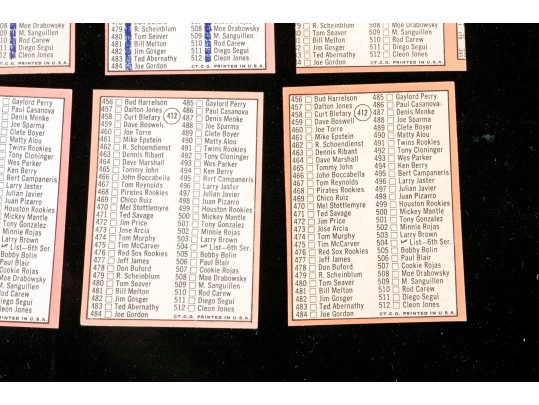 479 R. Scheinblum
480 Tom Seaver
481 Bill Melton
482 Jim Gosger
483 Ted Abernathy
484 Joe Gordon
508 Moe Drabowsky
509 M. Sanguillen
510 Rod Carew
511 Diego Segui
512 Cleon Jones
©T.C.G. PRINTED IN U.S.A.
R. Scheinblum
Tom Seaver
Bill Melton
Jim Gosger
Ted Abernathy
Joe Gordon
508 Moe Drabowsky
509 M. Sanguillen
510 Rod Carew
511 Diego Segui
512 Cleon Jones
©T.C.G. PRINTED IN U.S.A.
Gaylord Perry
Paul Casanova
Denis Menke
Joe Sparma
Clete Boyer
Matty Alou
Twins Rookies
Tony Cloninger
Wes Parker
Ken Berry
Bert Campaneris
Larry Jaster
Julian Javier
Juan Pizarro
Houston Rookies
Mickey Mantle
Tony Gonzalez
Minnie Rojas
Larry Brown
List—6th Ser.
Bobby Bolin
Paul Blair
Cookie Rojas
Moe Drabowsky
M. Sanguillen
Rod Carew
Diego Segui
Cleon Jones
PRINTED IN U.S.A.
456 Bud Harrelson
457 Dalton Jones
458 Curt Blefary
459 Dave Boswell
460 Joe Torre
461 Mike Epstein
462 R. Schoendienst
463 Dennis Ribant
464 Dave Marshall
465 Tommy John
466 John Boccabella
467 Tom Reynolds
468 Pirates Rookies
469 Chico Ruiz
470 Mel Stottlemyre
471 Ted Savage
472 Jim Price
473 Jose Arcia
474 Tom Murphy
475 Tim McCarver
476 Red Sox Rookies
477 Jeff James
478 Don Buford
479 R. Scheinblum
480 Tom Seaver
481 Bill Melton
482 Jim Gosger
483 Ted Abernathy
484 Joe Gordon
412
485 Gaylord Perry
486 Paul Casanova
487 Denis Menke
488 Joe Sparma
489 Clete Boyer
490 Matty Alou
491 Twins Rookies
492 Tony Cloninger
493 Wes Parker
494 Ken Berry
495 Bert Campaneris
496 Larry Jaster
497 Julian Javier
498 Juan Pizarro
499 Houston Rookies
500 Mickey Mantle
501 Tony Gonzalez
502 Minnie Rojas
503 Larry Brown
504 List—6th Ser.
505 Bobby Bolin
506 Paul Blair
507 Cookie Rojas
508 Moe Drabowsky
509 M. Sanguillen
510 Rod Carew
511 Diego Segui
512 Cleon Jones
©T.C.G. PRINTED IN U.S.A.
456 Bud Harrelson
457 Dalton Jones
458 Curt Blefary
459 Dave Boswell
460 Joe Torre
461 Mike Epstein
462 R. Schoendienst
463 Dennis Ribant
464 Dave Marshall
465 Tommy John
466 John Boccabella
467 Tom Reynolds
468 Pirates Rookies
469 Chico Ruiz
470 Mel Stottlemyre
471 Ted Savage
472 Jim Price
473 Jose Arcia
474 Tom Murphy
475 Tim McCarver
476 Red Sox Rookies
477 Jeff James
478 Don Buford
479 R. Scheinblum
480 Tom Seaver
481 Bill Melton
482 Jim Gosger
483 Ted Abernathy
484 Joe Gordon
412
485 Gaylord Perry
486 Paul Casanova
487 Denis Menke
488 Joe Sparma
489 Clete Boyer
490 Matty Alou
491 Twins Rookies
492 Tony Cloninger
493 Wes Parker
494 Ken Berry
495 Bert Campaneris
496 Larry Jaster
497 Julian Javier
498 Juan Pizarro
499 Houston Rookies
500 Mickey Mantle
501 Tony Gonzalez
502 Minnie Rojas
503 Larry Brown
504 List—6th Ser.
505 Bobby Bolin
506 Paul Blair
507 Cookie Rojas
508 Moe Drabowsky
509 M. Sanguillen
510 Rod Carew
511 Diego Segui
512 Cleon Jones
©T.C.G. PRINTED IN U.S.A.